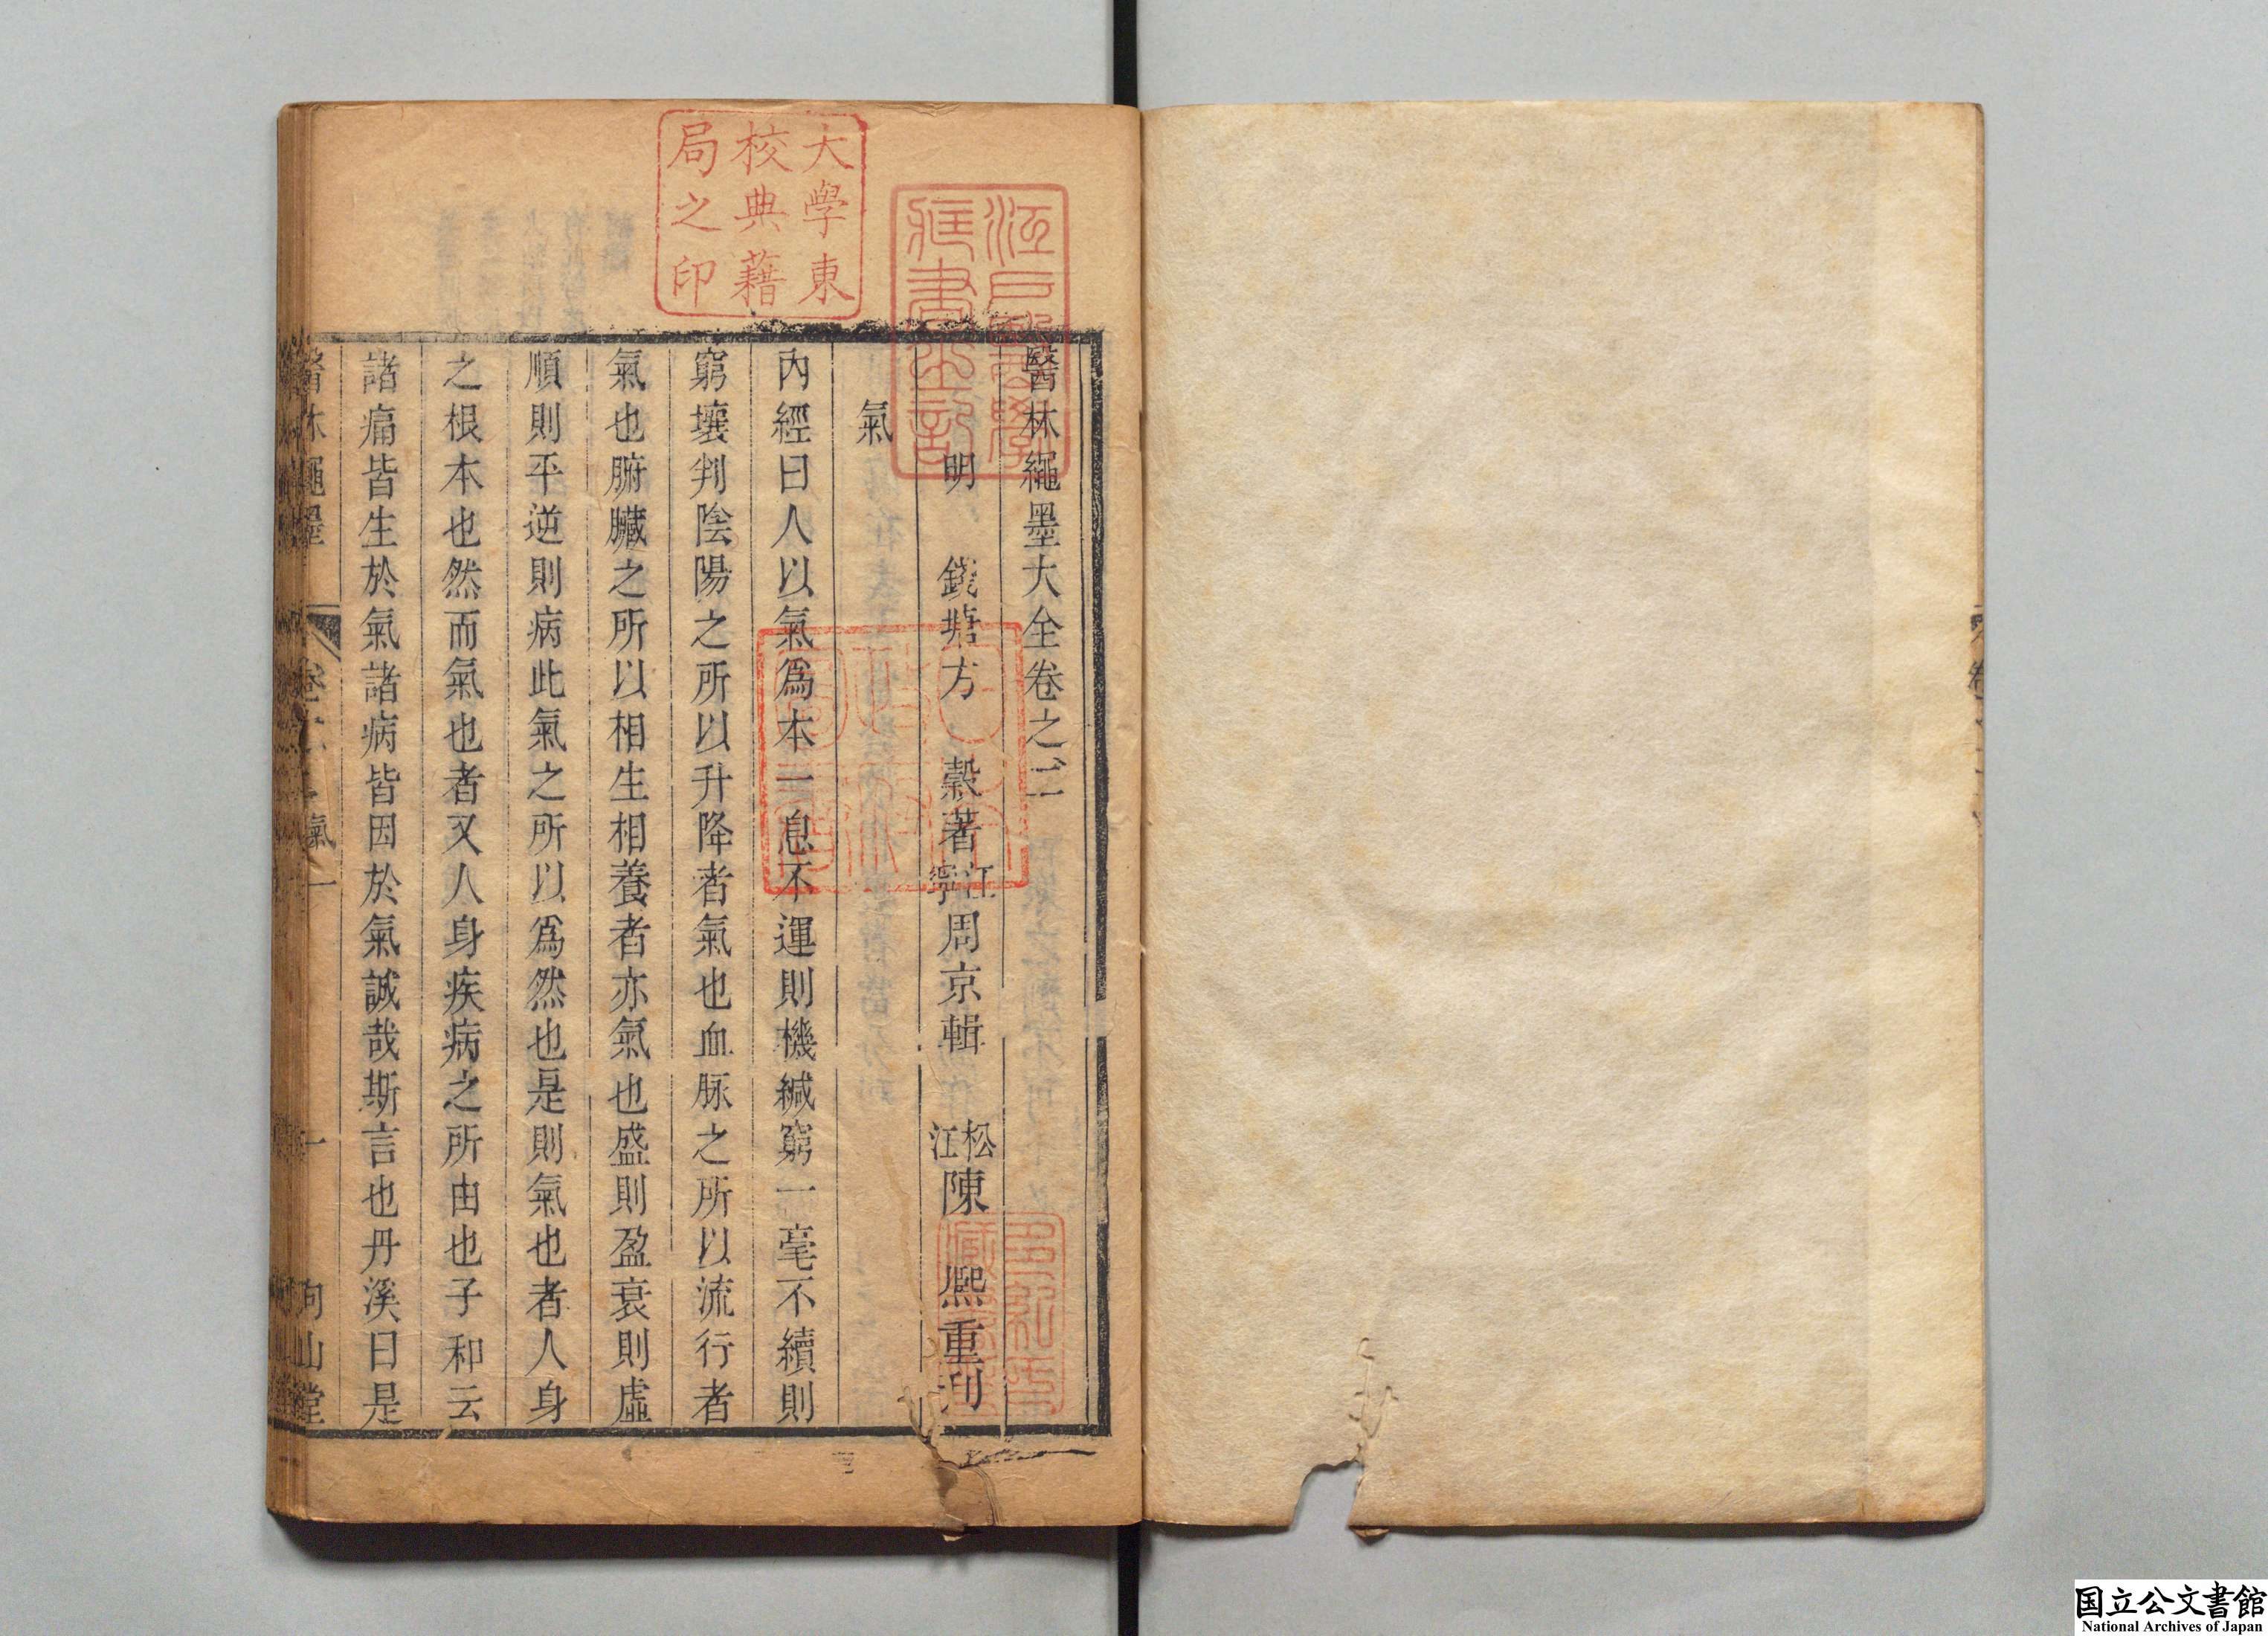 醫林繩墨大全卷之二
明 錢塘方 穀著 江寧周京輯 松江陳 熈重刋
氣
內經曰人以氣爲本一息不運則機緘窮一毫不續則
窮壤判陰陽之所以升降者氣也血脉之所以流行者
氣也腑臟之所以相生相養者亦氣也盛則盈衰則虛
順則平逆則病此氣之所以爲然也是則氣也者人身
之根本也然而氣也者又人身疾病之所由也子和云
諸痛皆生於氣諸病皆因於氣誠哉斯言也丹溪曰是
醫林繩墨 卷之二 氣 一 一 向山堂
大學東
校典藉
局之印
江戶醫學
藏書之記
日本
政府
圖書
多紀氏
藏書印
国立公文書館
National Archives of Japan